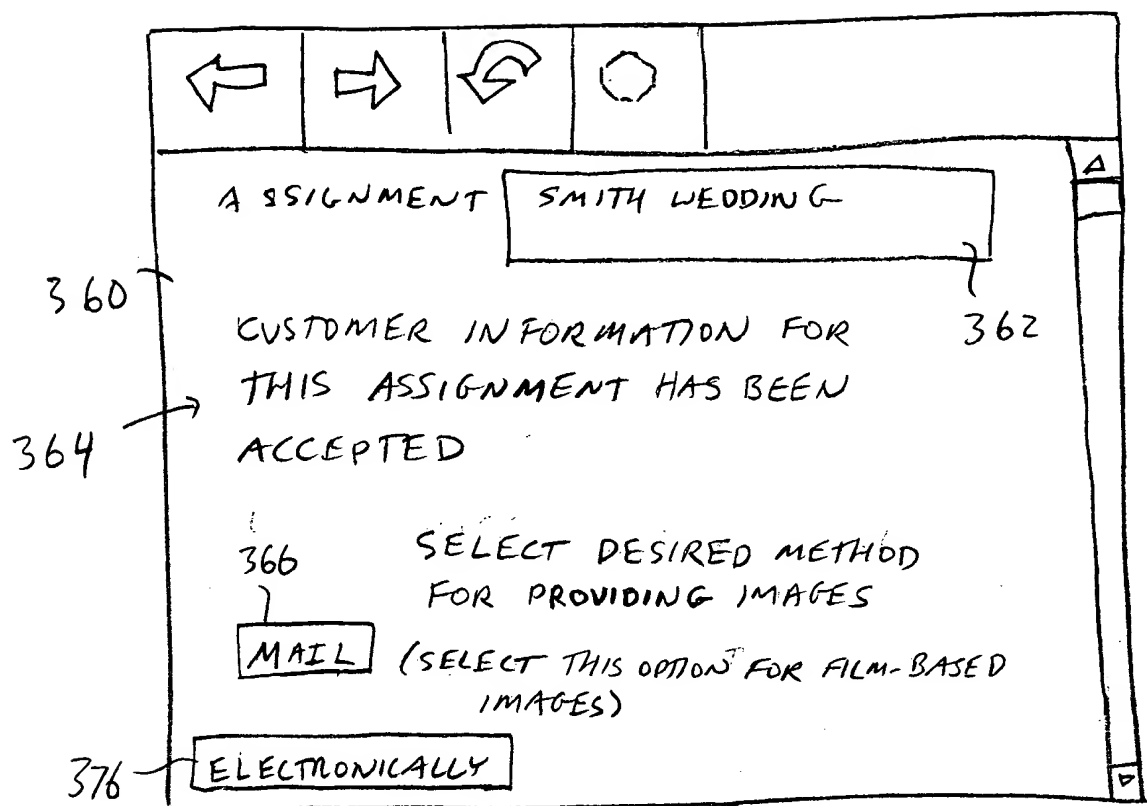 ASSIGNMENT SMITH WEDDING
360
362
CUSTOMER INFORMATION FOR
THIS ASSIGNMENT HAS BEEN
364
ACCEPTED
366
SELECT DESIRED METHOD
FOR PROVIDING IMAGES
MAIL (SELECT THIS OPTION FOR FILM-BASED
IMAGES)
376 ELECTRONICALLY